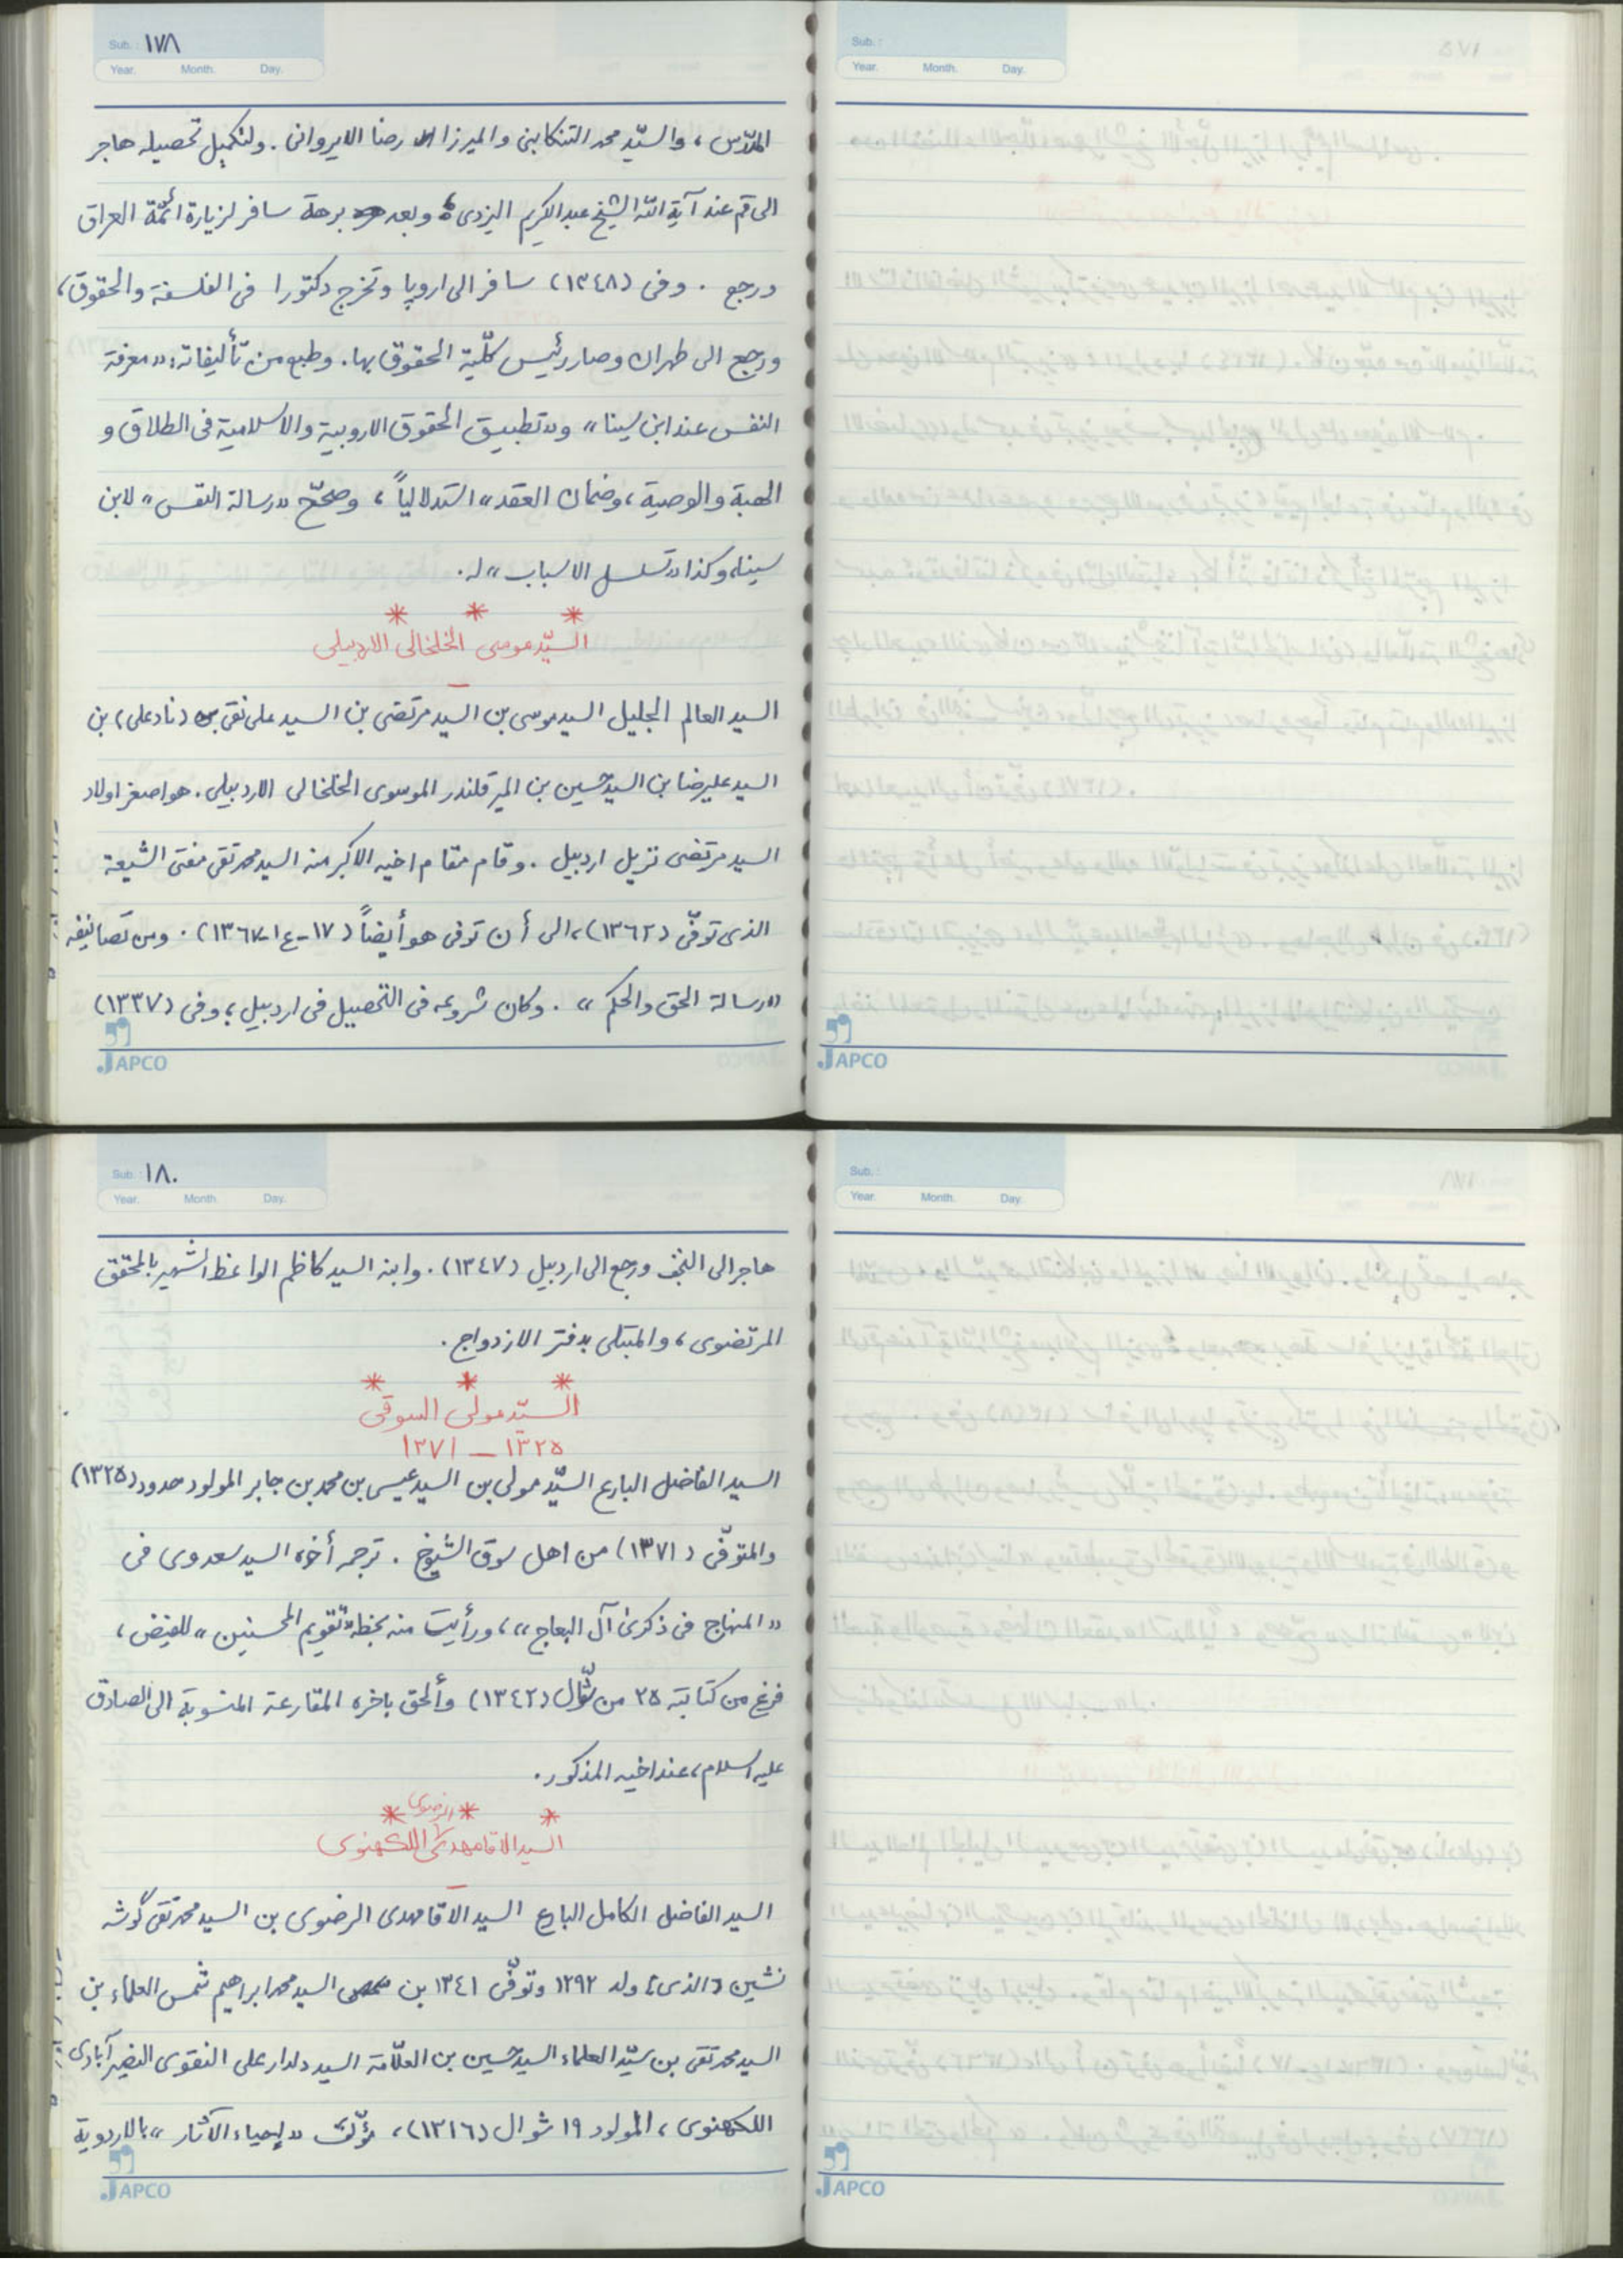 Sub. : ١٧٨
Year. Month. Day.
المدّس، والسيّد محمد التنكابنى والميرزا رضا الايروانى. ولتكميل تحصيله هاجر
الى قم عند آية اللّه الشيخ عبدالكريم اليزدى، وبعد برهة سافر لزيارة ائمّة العراق
ورجع. وفى (١٣٤٨) سافر الى اروپا وتخرج دكتورا فى الفلسفة والحقوق،
ورجع الى طهران وصار رئيس كلّية الحقوق بها. وطبع من تأليفاته: «معرفة
النفس عند ابن سينا» و«تطبيق الحقوق الاروبية والاسلامية فى الطلاق و
الهبة والوصية، وضمان العقد» استدلالياً، وصحّح «رسالة النفس» لابن
سينا، وكذا «تسلسل الاسباب» له.
* * *
السيّد موسى الخلخالى الاردبيلى
السيد العالم الجليل السيد موسى بن السيد مرتضى بن السيد على نقى (ناد على) بن
السيد عليرضا بن السيد حسين بن المير قلندر الموسوى الخلخالى الاردبيلى. هو اصغر اولاد
السيد مرتضى نزيل اردبيل. وقام مقام اخيه الاكبر منه السيد محمد تقى مفتى الشيعة
الذى توفّى (١٣٦٢)، الى أن توفى هو أيضاً (١٧-ع١-١٣٦٧). ومن تصانيفه
«رسالة الحق والحكم». وكان شروعه فى التحصيل فى اردبيل، وفى (١٣٣٧)
JAPCO
Sub. :
Year. Month. Day.
JAPCO
Sub. : ١٨٠
Year. Month. Day.
هاجر الى النجف ورجع الى اردبيل (١٣٤٧). وابنه السيد كاظم الواعظ الشهير بالمحقق
المرتضوى، والمبتلى بدفتر الازدواج.
* * *
السيّد مولى السوقى
١٣٢٥ – ١٣٧١
السيد الفاضل البارع السيّد مولى بن السيد عيسى بن محمد بن جابر المولود حدود (١٣٢٥)
والمتوفّى (١٣٧١) من اهل سوق الشيوخ. ترجمه أخوه السيد سعدوى فى
«المنهاج فى ذكرى آل البعاج»، ورأيت منه بخطه «تقويم المحسنين» للفيض،
فرغ من كتابته ٢٥ من شوّال (١٣٤٢) وألحق باخره المقارعة المنسوبة الى الصادق
عليه السلام، عند اخيه المذكور.
* * *
السيد الاقا مهدى الرضوى اللكهنوى
السيد الفاضل الكامل البارع السيد الاقا مهدى الرضوى بن السيد محمد تقى گوشه
نشين [الذى] ولد ١٢٩٢ وتوفّى ١٣٤١ بن السيد محمد ابراهيم شمس العلماء بن
السيد محمد تقى بن سيّد العلماء السيد حسين بن العلّامة السيد دلدار على النقوى النصير آبادى
اللكهنوى، المولود ١٩ شوال (١٣١٦)، مؤلّف «إحياء الآثار» بالاردوية
JAPCO
Sub. :
Year. Month. Day.
JAPCO